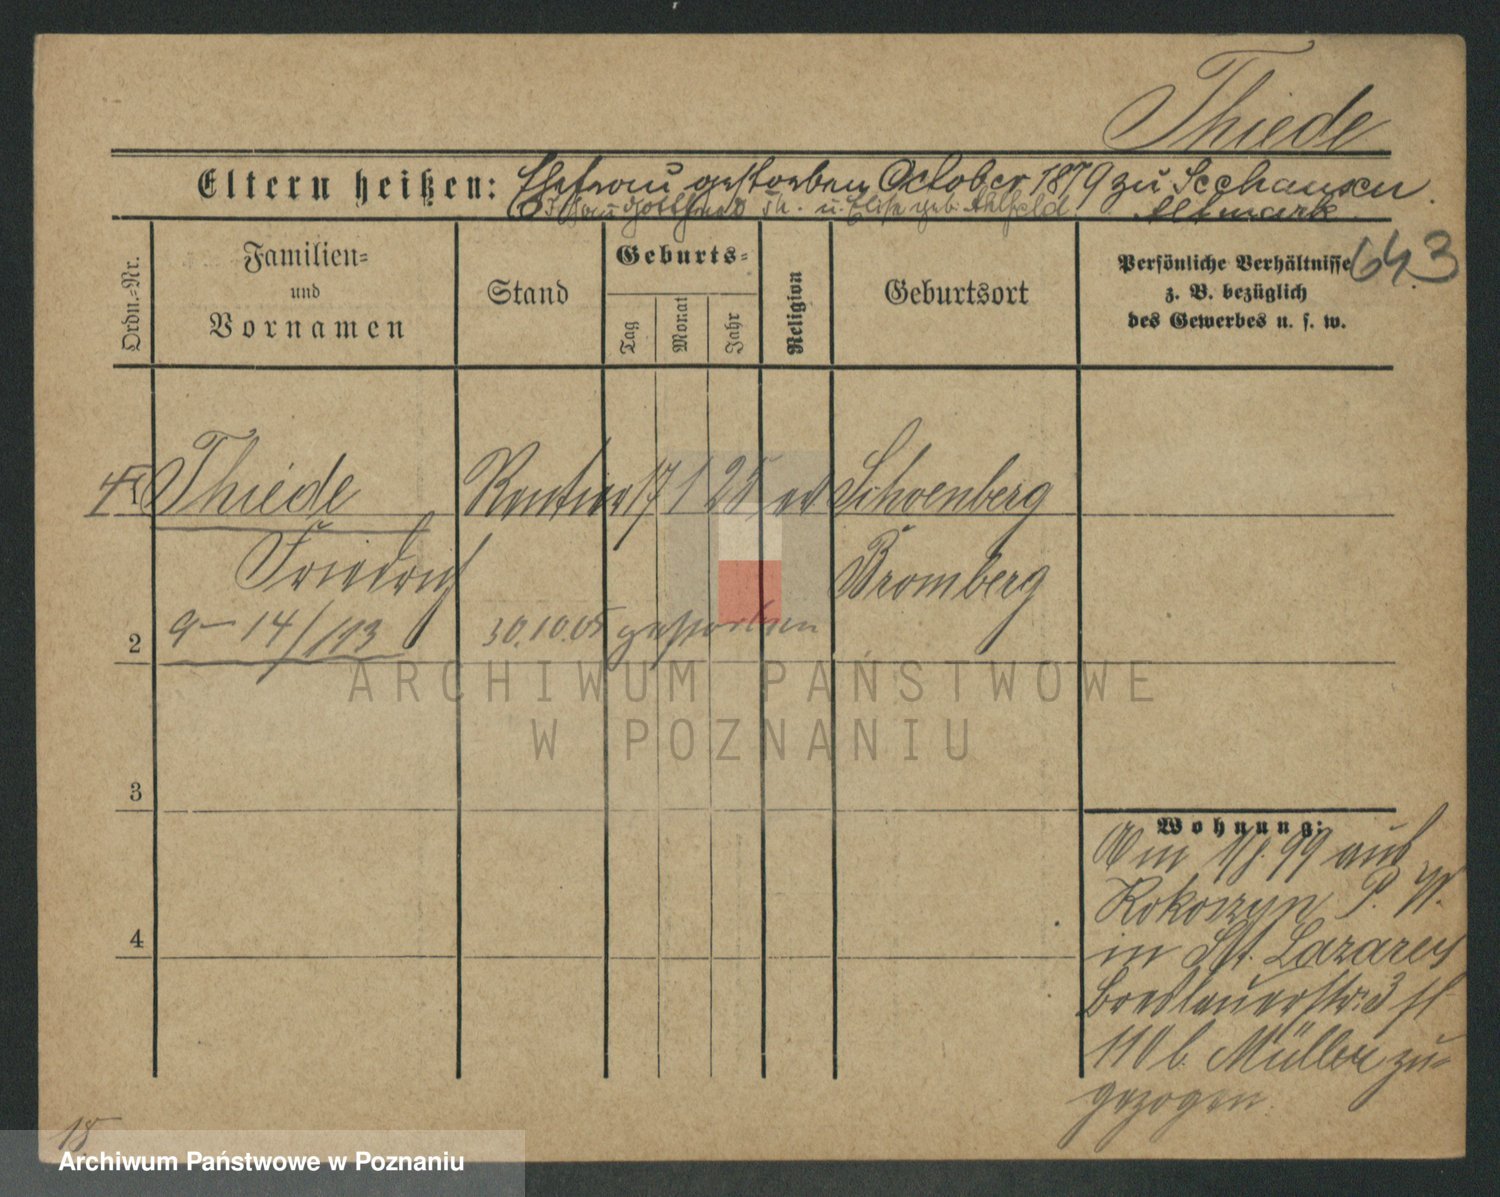 Thiede
Eltern heißen: Ehefrau gestorben October 1879 zu Seehausen
Gottfried Th. u. Elise geb. Ahlfeld Altmark
643
Ordn.-Nr.
Familien-
und
Vornamen
Stand
Geburts-
Tag
Monat
Jahr
Religion
Geburtsort
Persönliche Verhältnisse
z. B. bezüglich
des Gewerbes u. s. w.
1 Thiede Rentier 17 1 25 ev Schoenberg
Friedrich Bromberg
2 9-14/113 30.10.05 gestorben
ARCHIWUM PAŃSTWOWE
W POZNANIU
3
4
Wohnung:
Am 99 aus
Kokorzyn P. W.
in St. Lazarus
Breslauerstr. 3
110 b. Müller zu-
gezogen.
18
Archiwum Państwowe w Poznaniu